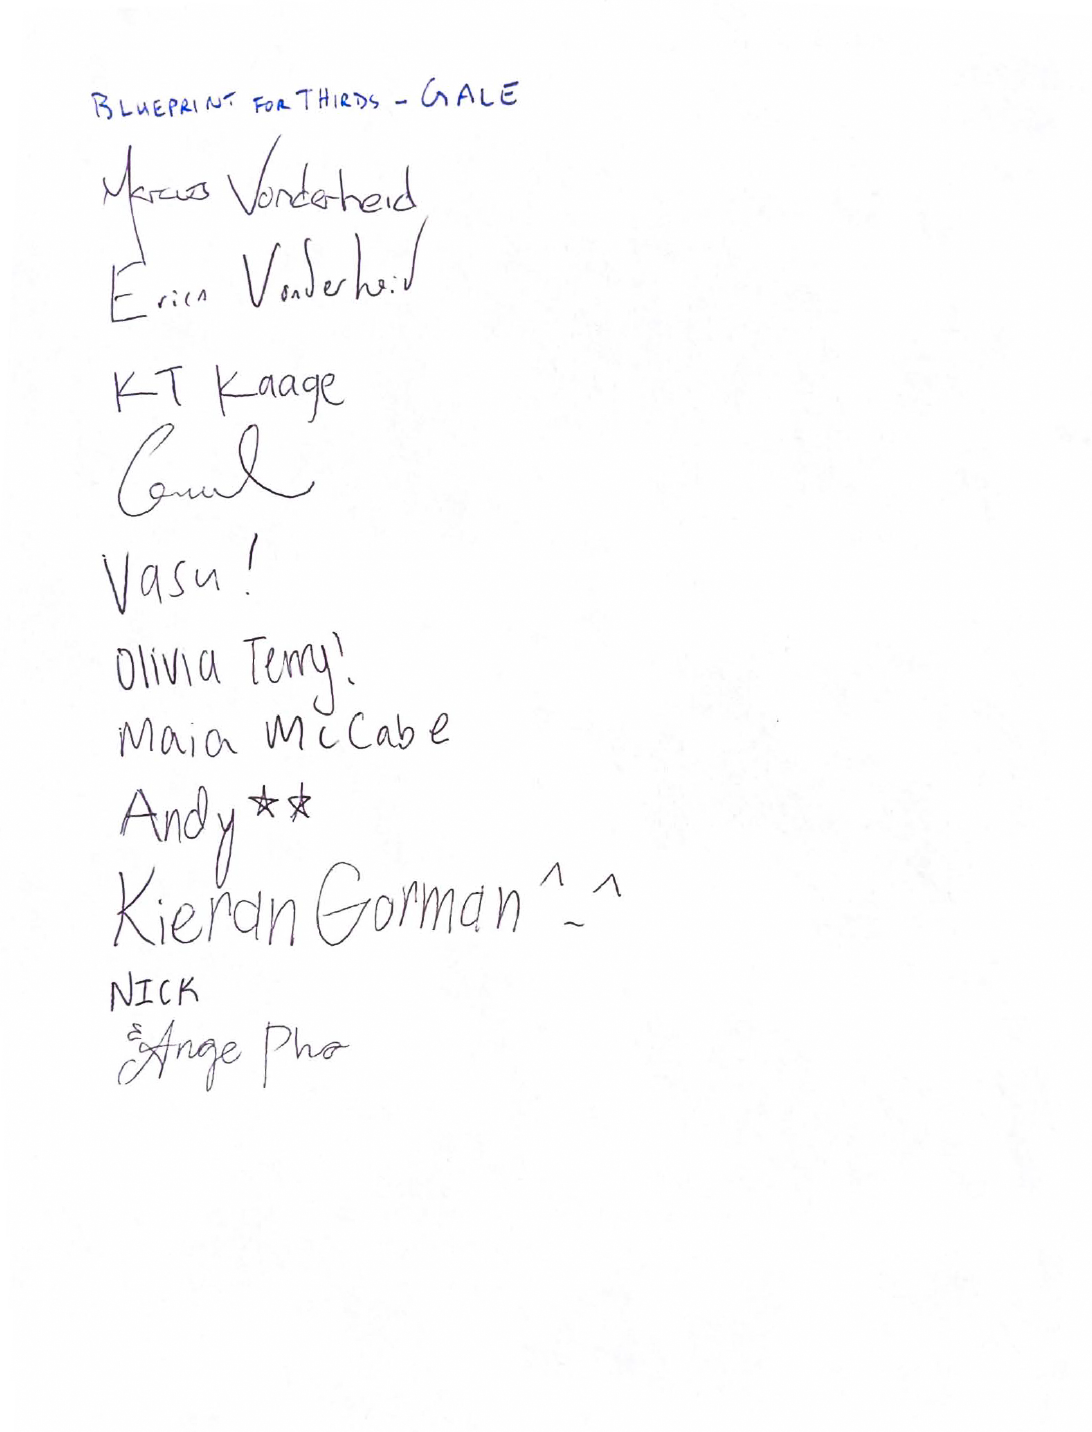 BLUEPRINT FOR THIRDS - GALE
Marcus Vonderheid
Erica Vonderheid
KT Kaage
Vasu!
Olivia Terry!
Maia McCabe
Andy ☆☆
Kieran Gorman ^_^
NICK
& Ange Pho